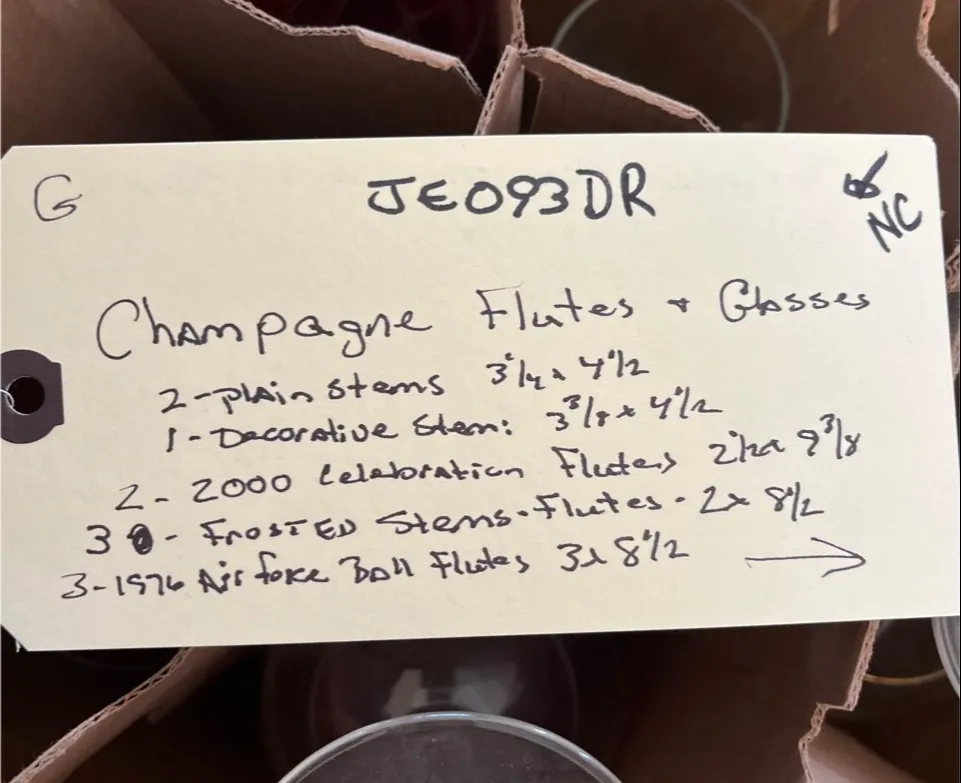 G
JE093DR
NC
Champagne Flutes + Glasses
2-plain stems 3 1/4 x 4 1/2
1-Decorative Stem: 3 3/8 x 4 1/2
2- 2000 Celebration Flutes 2 1/2 x 9 3/8
3 - FROSTED Stems-Flutes - 2 x 8 1/2
3-1976 Air force Ball Flutes 3 x 8 1/2